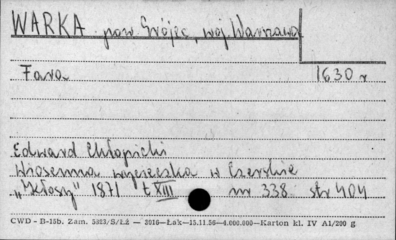 WARKA pow Grójec, woj Warszawa
Fara 1630 r
Edward Chłopicki
Wiosenna wycieczka w Czerskie
„Kłosy" 1871 t XIII nr 338 str 404
CWD - B-15b. Zam. 5823/S/Łż — 2016—Łak—15.11.56—4.000.000—Karton kl. IV A1/200 g.